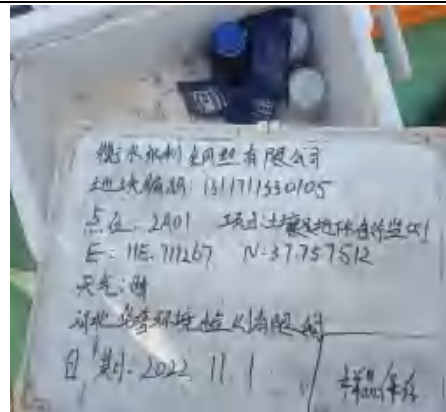 衡水永利金网丝有限公司
地块编码: 1311711330105
点位: 2A01 项目: 土壤及地下水自行监测
E: 115.711267 N: 37.757512
天气: 晴
河北 环境检测有限公司
日期: 2022.11.1
样品保存